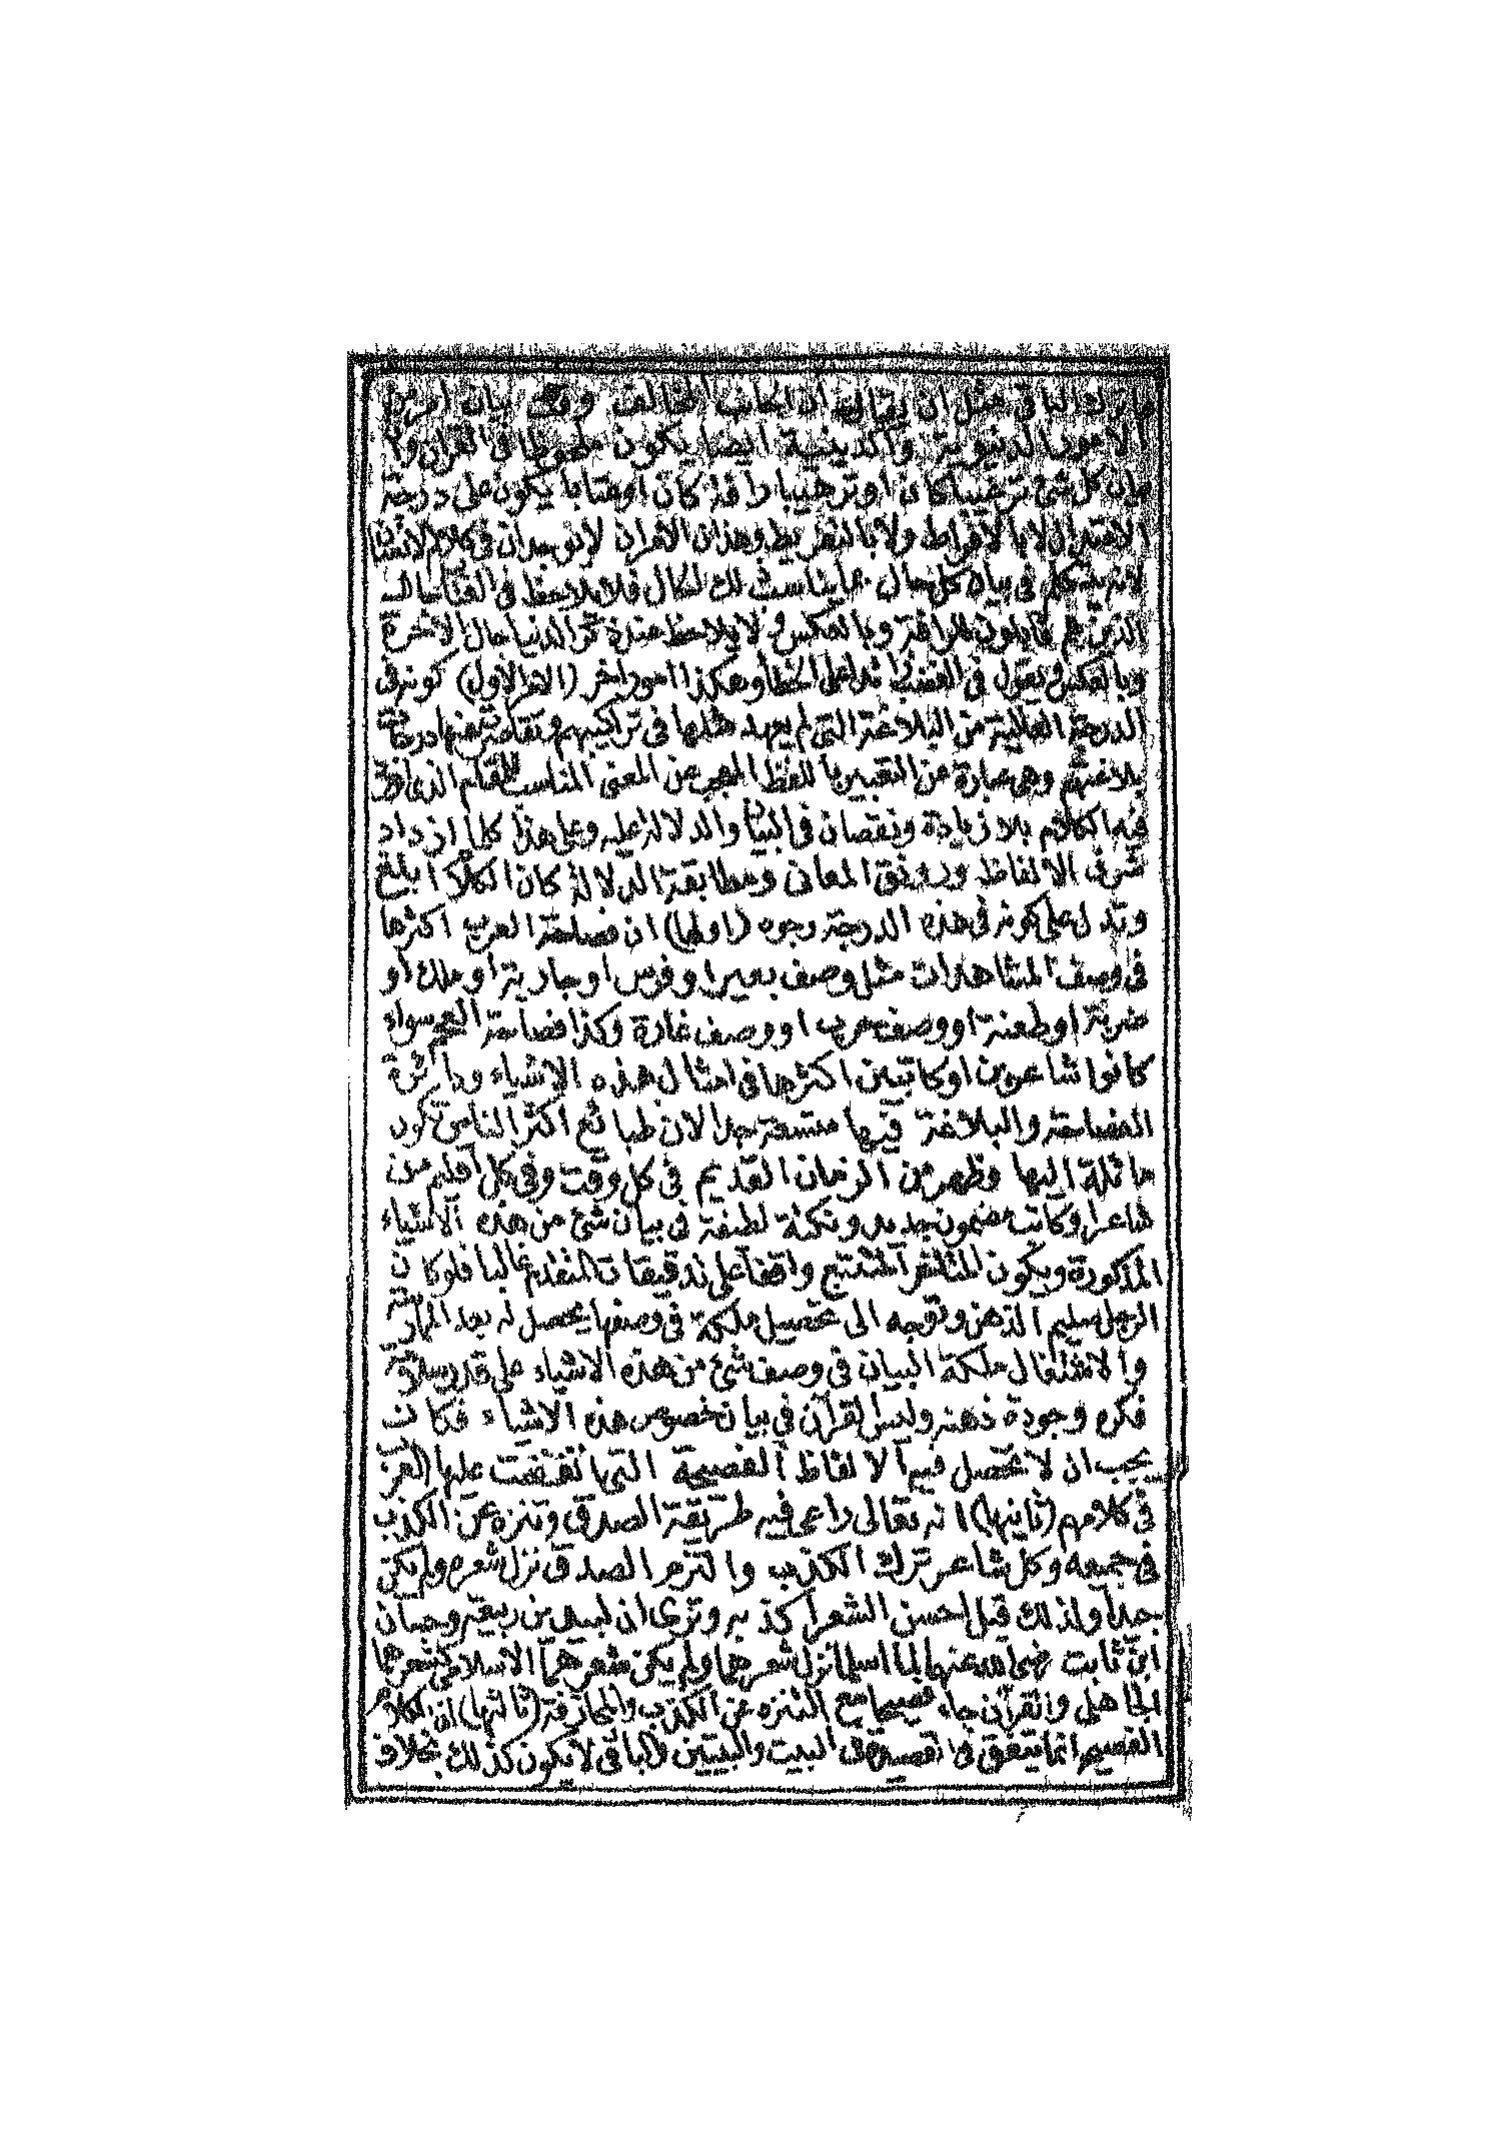 الباقي مثل ان يقال ان الجانب المخالف وقت بيان امر من
الامور الدنيوية والدينية ايضا يكون ملحوظا في القران وا
وان كل شئ ترغيبا كان او ترهيبا رافة كان او عتابا يكون على درجة
الاعتدال لا بالافراط ولا بالتفريط وهذان الامران لا يوجدان في كلام الانسان
لانه يتكلم في بيان كل حال بما يناسب ذلك الحال فلا يلاحظ في العتاب حال
الذين هم قابلون للرافة وبالعكس ولا يلاحظ عند ذكر الدنيا حال الاخرة
وبالعكس ويقول في الغضب زائدا على الخطأ وهكذا امور اخر (الامر الاول) كونه في
الدرجة العالية من البلاغة التي لم يعهد مثلها في تراكيبهم وتقاصرت عنها درجات
بلاغتهم وهي عبارة عن التعبير باللفظ المعجب عن المعنى المناسب للمقام الذي اورد
فيه الكلام بلا زيادة ونقصان في البيان والدلالة عليه وعلى هذا كلما ازداد
شرف الالفاظ ورونق المعاني ومطابقة الدلالة كان الكلام ابلغ
وتدل على كونه في هذه الدرجة وجوه (اولها) ان فصاحة العرب اكثرها
في وصف المشاهدات مثل وصف بعير او فرس او جارية او ملك او
ضربة او طعنة او وصف حرب او وصف غارة وكذا فصاحة العجم سواء
كانوا شاعرين او كاتبين اكثرها في امثال هذه الاشياء ودائرة
الفصاحة والبلاغة فيها متسعة جدا لان طبائع اكثر الناس تكون
مائلة اليها وظهر من الزمان القديم في كل وقت وفي كل اقليم من
شاعر او كاتب مضمون جديد ونكتة لطيفة في بيان شئ من هذه الاشياء
المذكورة ويكون المتأخر المتتبع واقفا على تدقيقات المتقدم غالبا فلو كان
الرجل سليم الذهن وتوجه الى تحصيل ملكة في وصفها يحصل له بعد الممارسة
والاشتغال ملكة البيان في وصف شئ من هذه الاشياء على قدر سلامة
فكره وجودة ذهنه وليس القرآن في بيان خصوص هذه الاشياء فكان
يجب ان لا تحصل فيه الالفاظ الفصيحة التي اتفقت عليها العرب
في كلامهم (ثانيها) انه تعالى راعى فيه طريقة الصدق وتنزه عن الكذب
في جميعه وكل شاعر ترك الكذب والتزم الصدق نزل شعره ولم يكن
جيدا ولذلك قيل احسن الشعر اكذبه وترى ان لبيد بن ربيعة وحسان
ابن ثابت رضي الله عنهما لما اسلما نزل شعرهما ولم يكن شعرهما الاسلامي كشعرهما
الجاهلي والقرآن جاء فصيحا مع التنزه عن الكذب والمجازفة (ثالثها) ان الكلام
الفصيح انما يتفق في القصيدة في البيت والبيتين والباقي لا يكون كذلك بخلاف